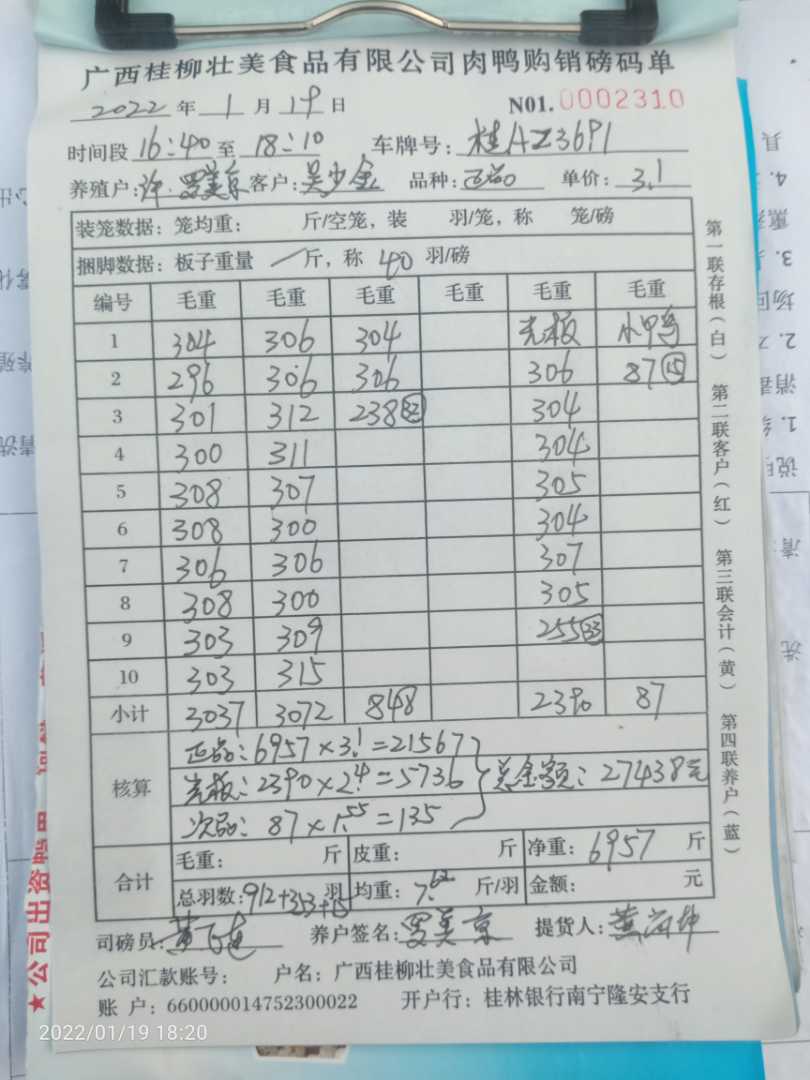 广西桂柳壮美食品有限公司肉鸭购销磅码单
2022年1月19日 N01.0002310
时间段 16:40 至 18:10 车牌号: 桂AZ3691
养殖户: 许·罗美京 客户: 吴少金 品种: 正品 单价: 3.1
装笼数据: 笼均重: 斤/空笼, 装 羽/笼, 称 笼/磅
捆脚数据: 板子重量 / 斤, 称 40 羽/磅
编号 毛重 毛重 毛重 毛重 毛重 毛重
1 304 306 304 光板 小鸭
2 296 306 306 306 87 ⑮
3 301 312 238 32 304
4 300 311 304
5 308 307 305
6 308 300 304
7 306 306 307
8 308 300 305
9 303 309 255 33
10 303 315
小计 3037 3072 848 2390 87
核算
正品: 6957×3.1=21567
光板: 2390×2.4=5736 总金额: 27438元
次品: 87×1.55=135
合计
毛重: 斤 皮重: 斤 净重: 6957 斤
总羽数: 912+353+15 羽 均重: 7.62 斤/羽 金额: 元
司磅员: 养户签名: 罗美京 提货人:
公司汇款账号: 户名: 广西桂柳壮美食品有限公司
账 户: 660000014752300022 开户行: 桂林银行南宁隆安支行
第一联存根(白) 第二联客户(红) 第三联会计(黄) 第四联养户(蓝)
2022/01/19 18:20